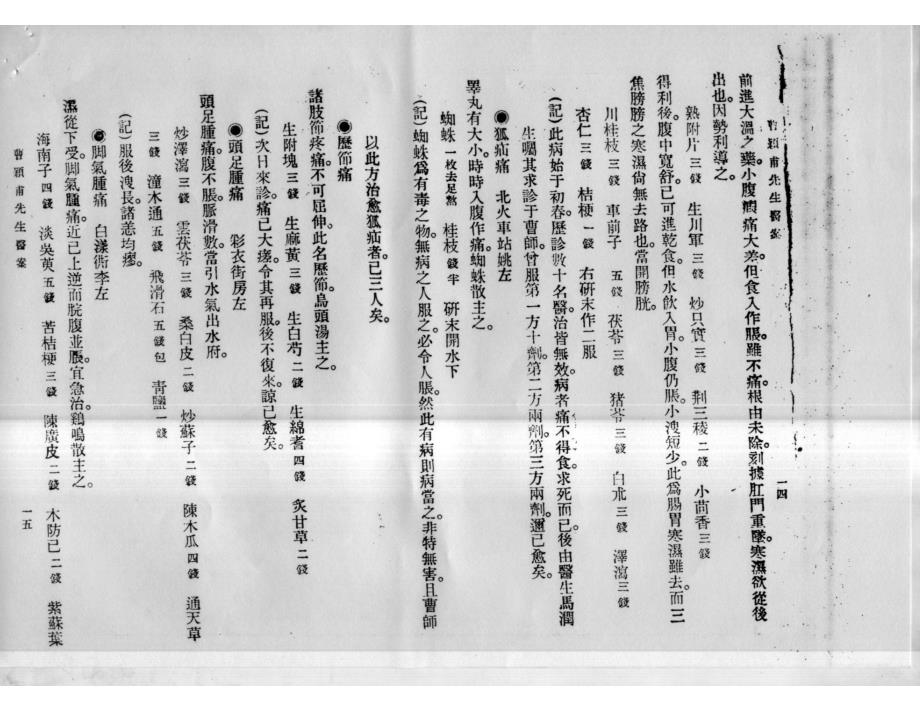 曹穎甫先生醫案
一四
前進大溫之藥。小腹悶痛大差。但食入作脹。雖不痛。根由未除。刻據肛門重墜。寒濕欲從後
出也。因勢利導之。
熟附片三錢 生川軍三錢 炒只實三錢 荆三稜二錢 小茴香三錢
得利後。腹中寬舒。已可進乾食。但水飲入胃。小腹仍脹。小溲短少。此爲腸胃寒濕雖去。而三
焦膀胱之寒濕尙無去路也。當開膀胱。
川桂枝三錢 車前子五錢 茯苓三錢 猪苓三錢 白朮三錢 澤瀉三錢
杏仁三錢 桔梗一錢 右研末作二服
(記)此病始于初春。歷診數十名醫。治皆無效。病者痛不得食。求死而已。後由醫生馬潤
生囑其求診于曹師。曾服第一方十劑。第二方兩劑。第三方兩劑。邇已愈矣。
◉狐疝痛 北火車站姚左
睪丸有大小。時時入腹作痛。蜘蛛散主之。
蜘蛛一枚去足熬 桂枝錢半 研末開水下
(記)蜘蛛爲有毒之物。無病之人服之。必令人脹。然此有病則病當之。非特無害。且曹師
以此方治愈狐疝者。已三人矣。
◉歷節痛
諸肢節疼痛。不可屈伸。此名歷節。烏頭湯主之。
生附塊三錢 生麻黃三錢 生白芍二錢 生綿耆四錢 炙甘草二錢
(記)次日來診。痛已大瘥。令其再服。後不復來。諒已愈矣。
◉頭足腫痛 彩衣街房左
頭足腫痛。腹不脹。脈滑數。當引水氣出水府。
炒澤瀉三錢 雲茯苓三錢 桑白皮二錢 炒蘇子二錢 陳木瓜四錢 通天草
三錢 潼木通五錢 飛滑石五錢包 靑鹽一錢
(記)服後溲長。諸恙均瘳。
◉脚氣腫痛 白漾衖李左
濕從下受。脚氣腫痛。近已上逆而脘腹並脹。宜急治。鷄鳴散主之。
海南子四錢 淡吳萸五錢 苦桔梗三錢 陳廣皮二錢 木防己二錢 紫蘇葉
曹穎甫先生醫案
一五